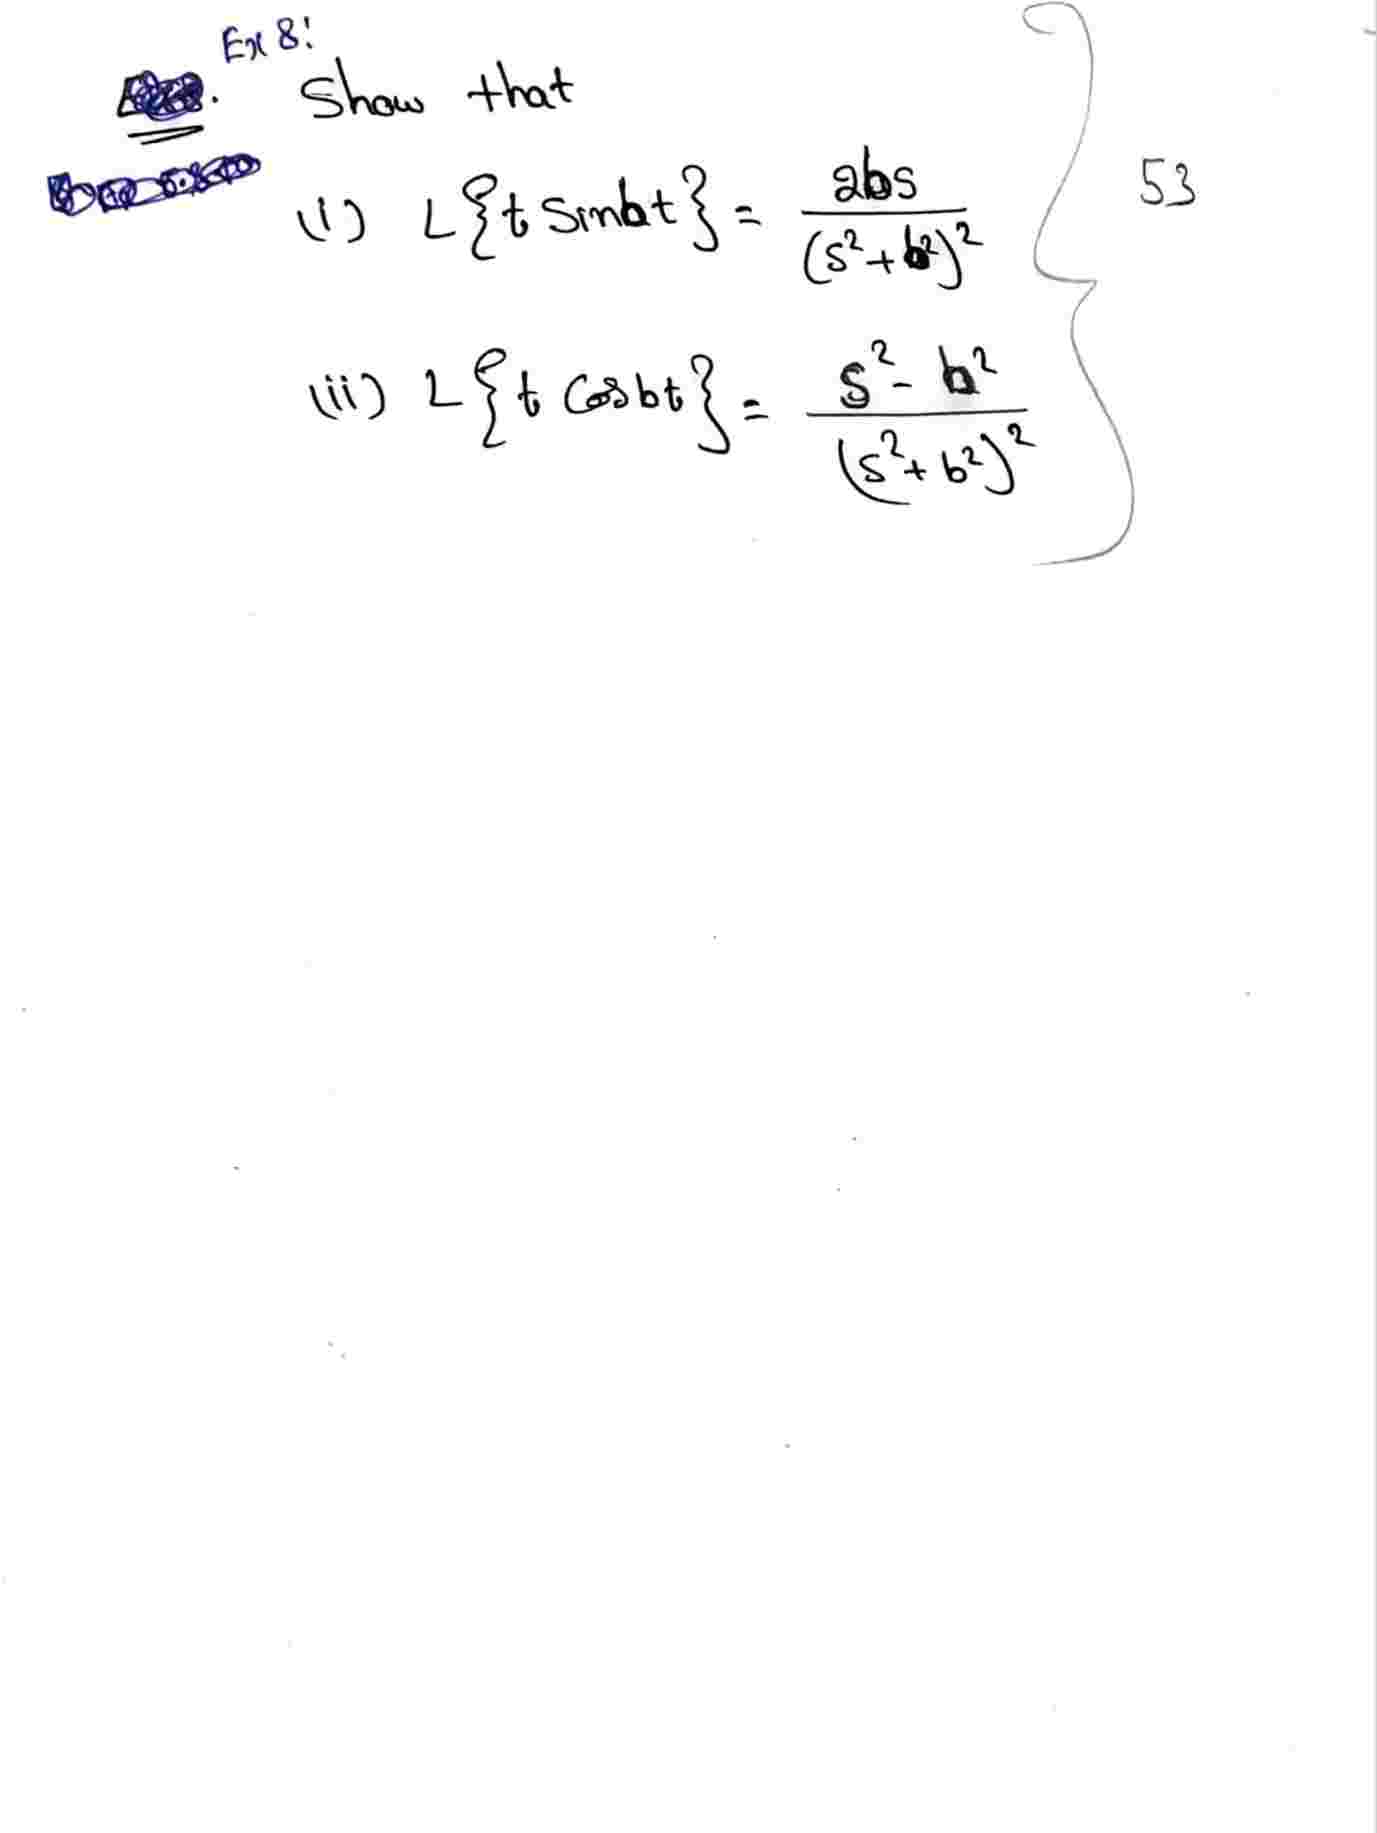 Ex 8:
Show that
(i) L{t Sinbt} = 2bs / (s²+b²)²
53
(ii) L{t Cosbt} = s² - b² / (s²+b²)²